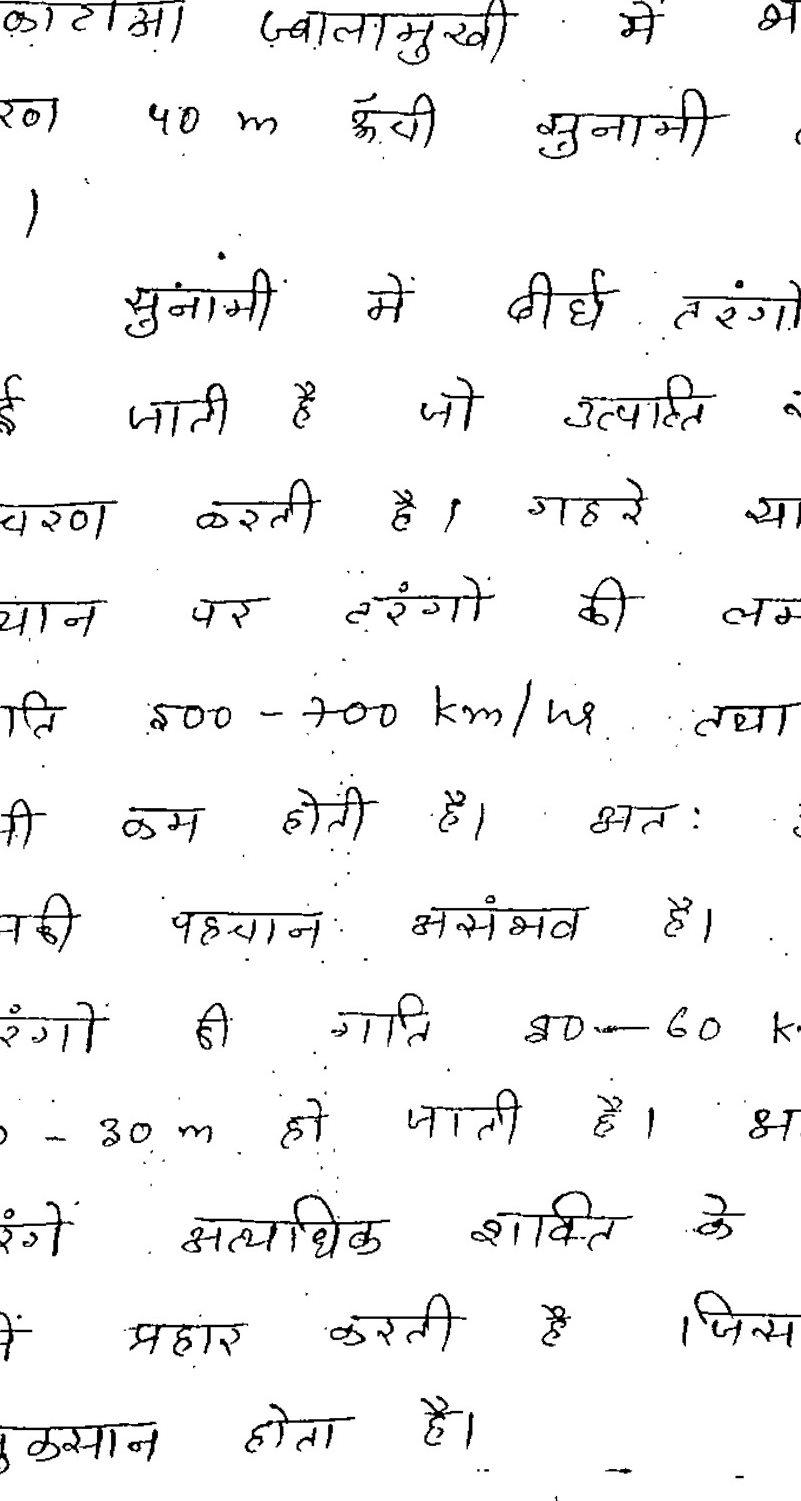 काटोआ ज्वालामुखी में
रण 40 m ऊँची सुनामी
।
सुनामी में दीर्घ तरंगो
ई जाती है जो उत्पत्ति
चरण करती है। गहरे सा
थान पर तरंगों की लम
गति 500 - 700 km/hr तथा
भी कम होती है। अत:
नकी पहचान असंभव है।
रंगों की गति 50 - 60 k
0 - 30 m हो जाती है। अ
रंगें अत्याधिक शक्ति के
में प्रहार करती है । जिस
नुकसान होता है।